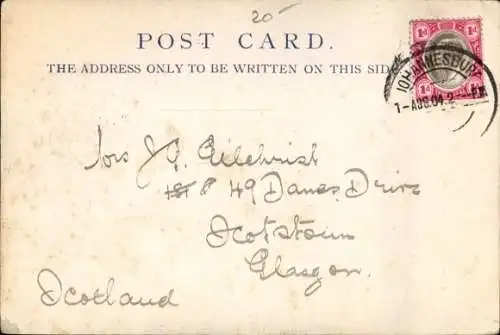 20-
POST CARD.
THE ADDRESS ONLY TO BE WRITTEN ON THIS SID
1d 1d
JOHANNESBURG
1-AUG.04.2 -PM
1d 1d
J. Gilchrist
49 Danes Drive
Scotstoun
Glasgow.
Scotland